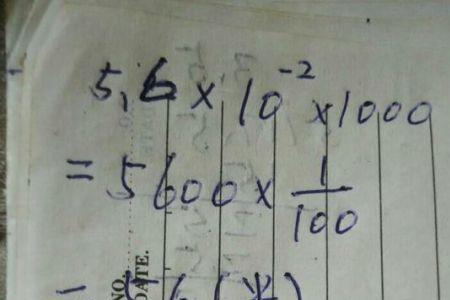 5,6 × 10⁻² × 1000
= 5600 × 1/100
NO.
DATE.
= 56 (